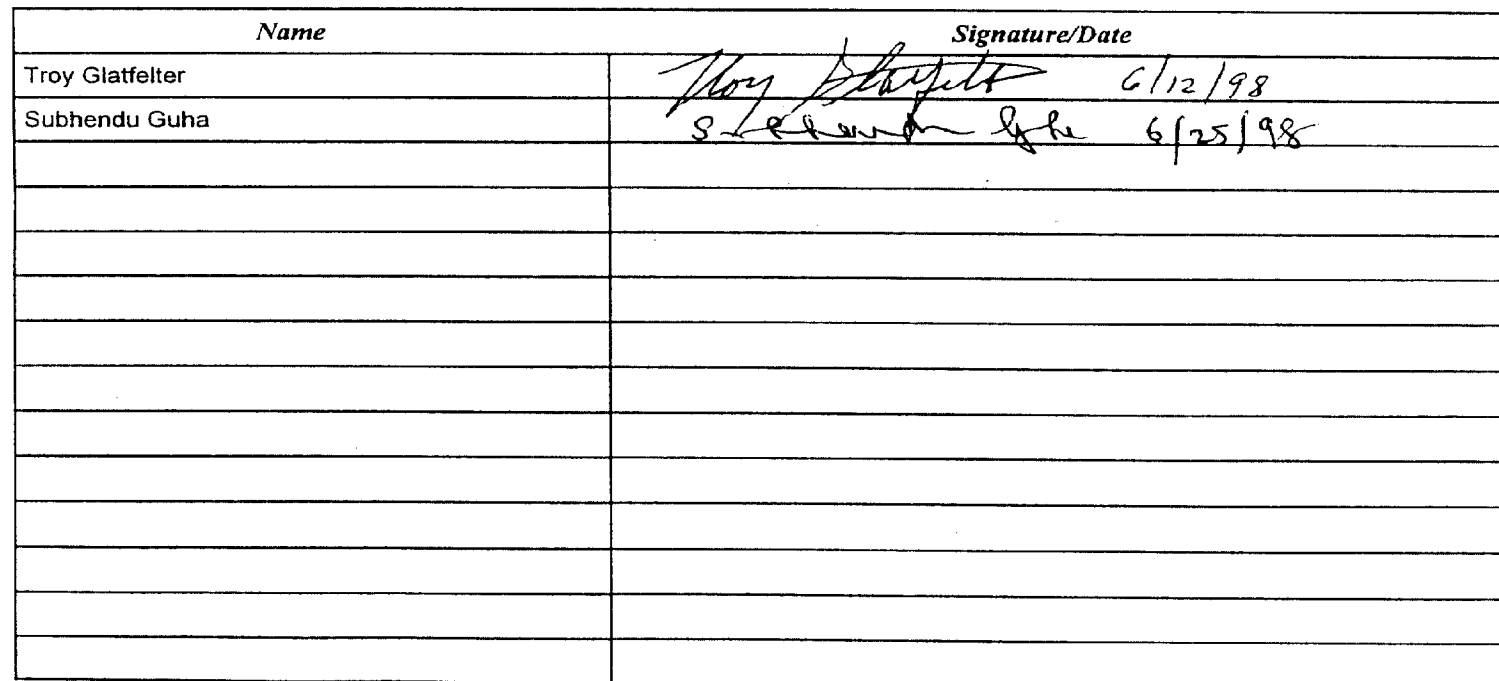 Name Signature/Date
Troy Glatfelter Troy Glatfelter 6/12/98
Subhendu Guha Subhendu Guha 6/25/98